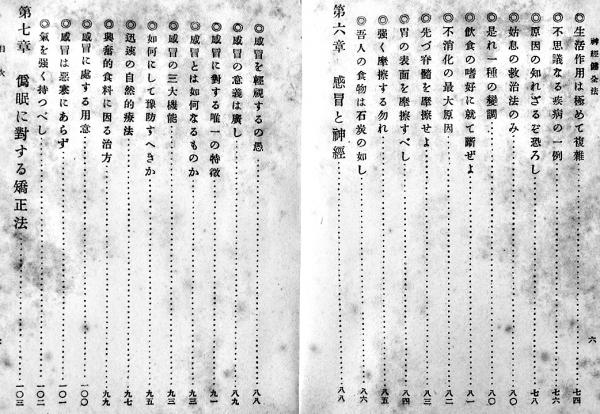 神經健全法
六
◎生活作用は極めて複雜……七四
◎不思議なる疾病の一例……七六
◎原因の知れざるぞ恐ろし……七八
◎姑息の救治法のみ……八〇
◎是れ一種の變調……八〇
◎飮食の嗜好に就て斷ぜよ……八一
◎不消化の最大原因……八二
◎先づ脊髓を摩擦せよ……八三
◎胃の表面を摩擦すべし……八四
◎强く摩擦する勿れ……八五
◎吾人の食物は石炭の如し……八六
第六章 感冒と神經……八八
◎感冒を輕視するの愚……八八
◎感冒の意義は廣し……八九
◎感冒に對する唯一の特徵……九一
◎感冒とは如何なるものか……九三
◎感冒の三大機能……九三
◎如何にして豫防すべきか……九五
◎迅速の自然的療法……九七
◎興奮的食料に因る治方……九九
◎感冒に處する用意……一〇〇
◎感冒は惡寒にあらず……一〇一
◎氣を强く持つべし……一〇二
第七章 僞眠に對する矯正法……一〇三
目次